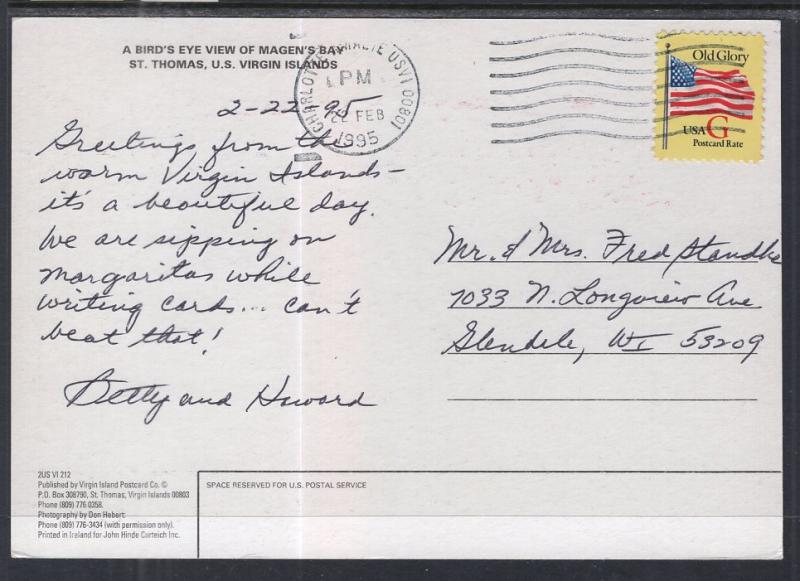 A BIRD'S EYE VIEW OF MAGEN'S BAY
ST. THOMAS, U.S. VIRGIN ISLANDS
CHARLOTTE AMALIE USVI 00801
PM
22 FEB
1995
Old Glory
USA G
Postcard Rate
2-22-95
Greetings from the
warm Virgin Islands-
it's a beautiful day.
We are sipping on
margaritas while
writing cards... can't
beat that!
Betty and Howard
Mr. & Mrs. Fred Standke
7033 N. Longview Ave
Glendale, WI 53209
2US VI 212
Published by Virgin Island Postcard Co. ©
P.O. Box 308790, St. Thomas, Virgin Islands 00803
Phone (809) 776 0358.
Photography by Don Hebert
Phone (809) 776-3434 (with permission only).
Printed in Ireland for John Hinde Curteich Inc.
SPACE RESERVED FOR U.S. POSTAL SERVICE